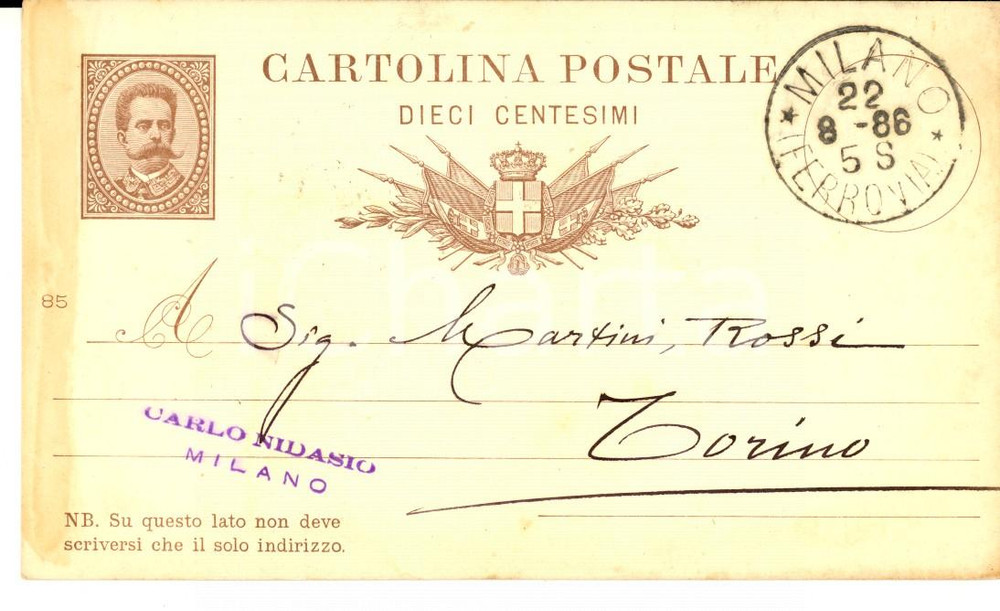 CARTOLINA POSTALE
DIECI CENTESIMI
MILANO
22
8 - 86
5 S
(FERROVIA)
85
A Sig. Martini, Rossi
Torino
CARLO NIDASIO
MILANO
NB. Su questo lato non deve
scriversi che il solo indirizzo.